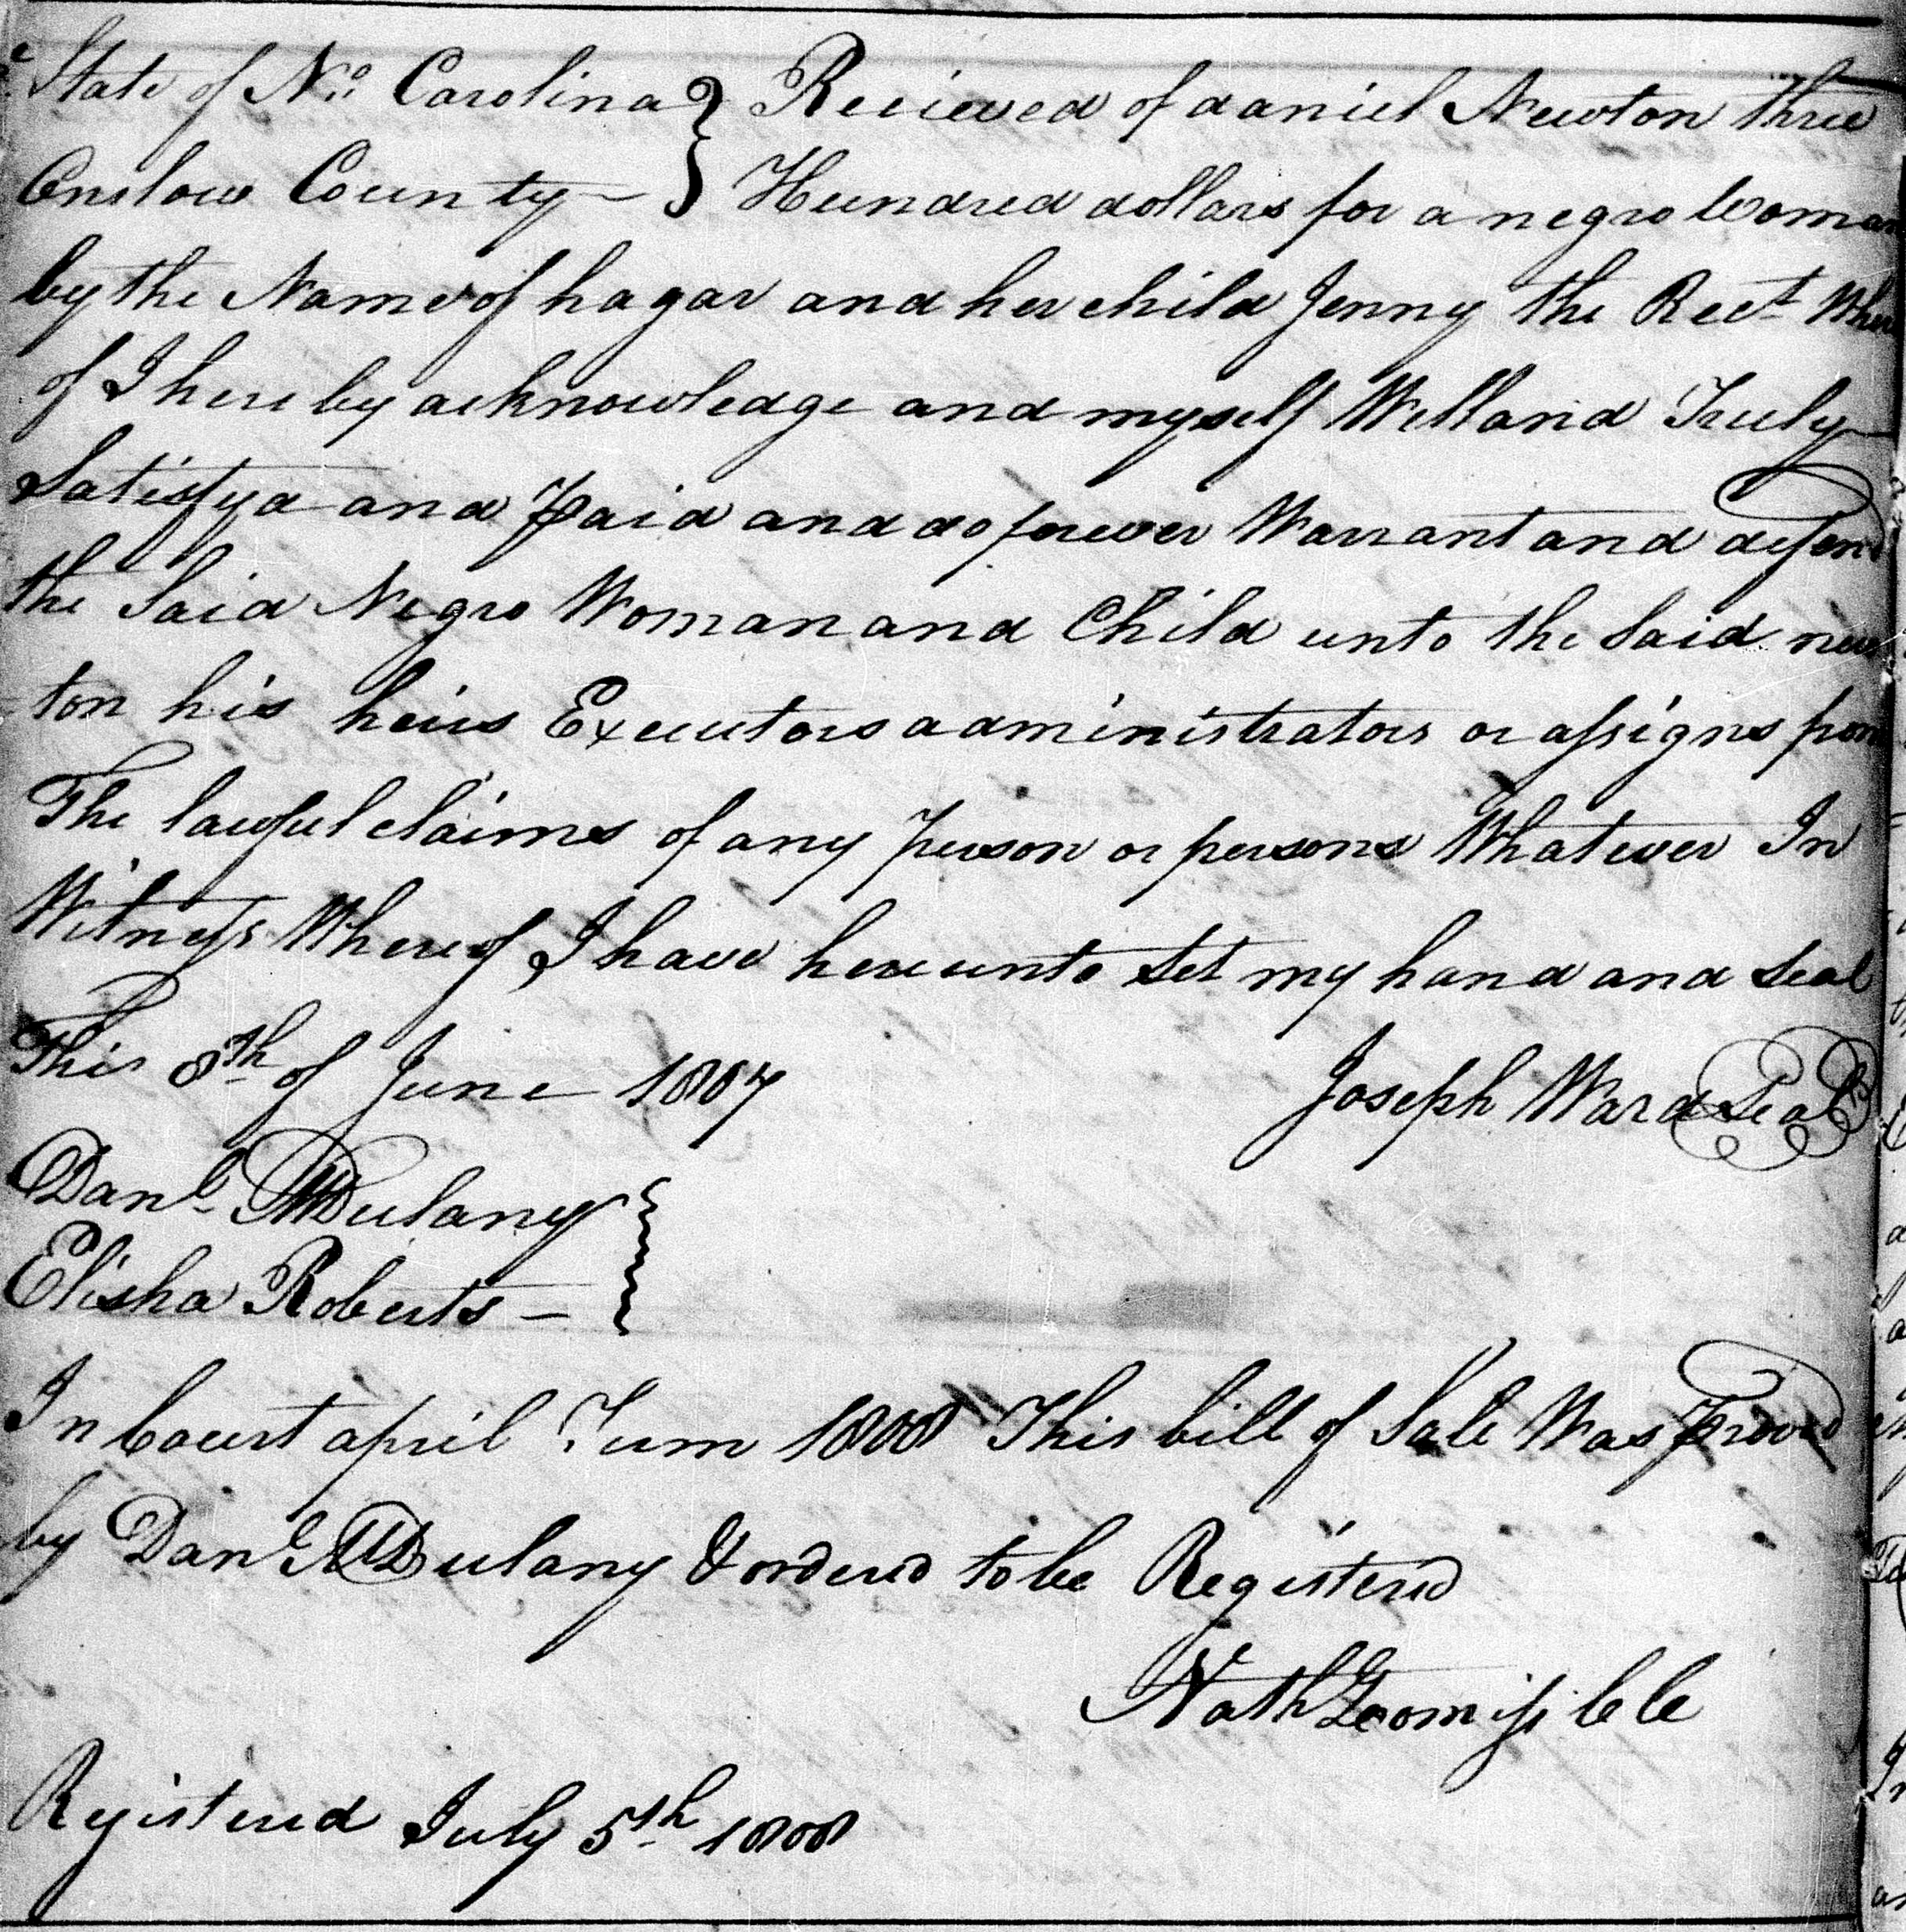 State of No. Carolina } Recieved of daniel Newton three
Onslow County — } Hundred dollars for a negro Woman
by the Name of hagar and her child Jenny the Rect Where
of I hereby acknowledge and myself Well and Truly
Satisfyd and Paid and do forever Warrant and defend
the Said Negro Woman and Child unto the Said new
ton his heirs Executors administrators or assigns from
The lawful claims of any person or persons Whatever In
Witness Whereof I have hereunto Set my hand and Seal
This 8th of June 1807 Joseph Ward Seal
Danl. MDulany }
Elisha Roberts — }
In Court april Term 1808 This bill of Sale Was Proved
by Danl MDulany & ordered to be Registered
Nath Loomiss CC
Registered July 5th 1808